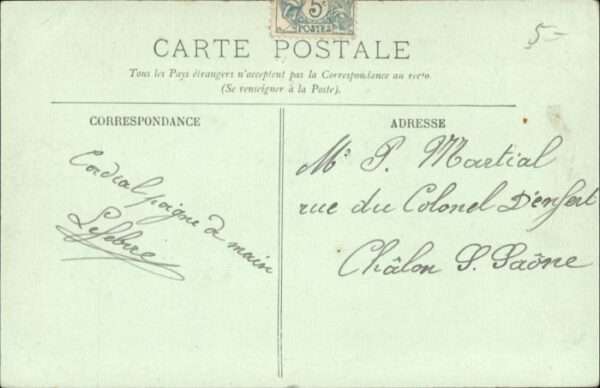 5c
POSTES
5-
CARTE POSTALE
Tous les Pays étrangers n'acceptent pas la Correspondance au recto.
(Se renseigner à la Poste).
CORRESPONDANCE
ADRESSE
Cordial poigne de main
Lefebvre
Mr P. Martial
rue du Colonel Denfert
Châlon S. Saône